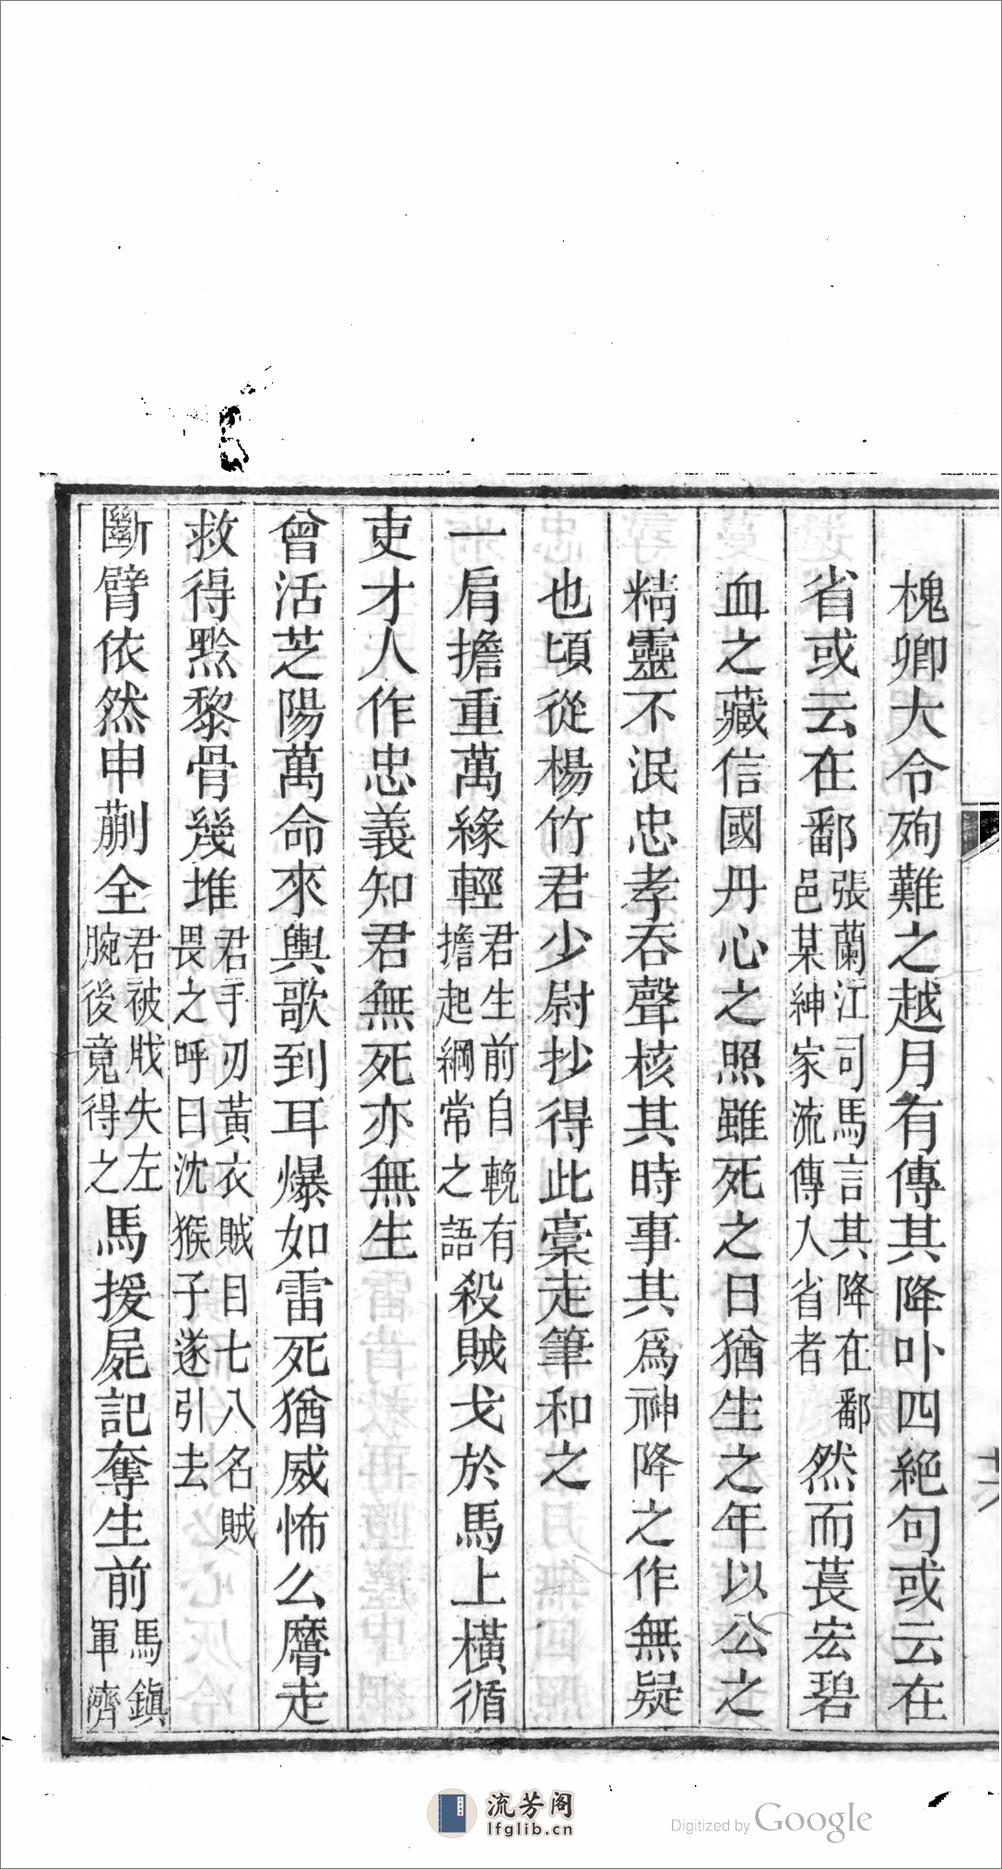 槐卿大令殉難之越月有傳其降卟四絕句或云在
省或云在鄱張蘭江司馬言其降在鄱邑某紳家流傳人省者然而萇宏碧
血之藏信國丹心之照雖死之日猶生之年以公之
精靈不泯忠孝吞聲核其時事其爲神降之作無疑
也頃從楊竹君少尉抄得此稾走筆和之
一肩擔重萬緣輕君生前自輓有擔起綱常之語殺賊戈於馬上橫循
吏才人作忠義知君無死亦無生
曾活芝陽萬命來輿歌到耳爆如雷死猶威怖么麿走
救得黔黎骨幾堆君手刃黃衣賊目七八名賊畏之呼曰沈猴子遂引去
斷臂依然申蒯全君被戕失左腕後竟得之馬援屍記奪生前馬鎮軍濟
流芳阁
lfglib.cn
Digitized by Google